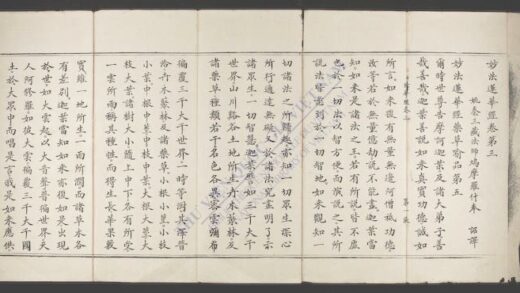 妙法蓮華經卷第三
姚秦三藏法師鳩摩羅什奉 詔譯
妙法蓮華經藥草喻品第五
爾時世尊告摩訶迦葉及諸大弟子善
哉善哉迦葉善說如來真實功德誠如
所言如來復有無量無邊阿僧祇功德
汝等若於無量億劫說不能盡迦葉當
知如來是諸法之王若有所說皆不虛
也於一切法以智方便而演說之其所
說法皆悉到於一切智地如來觀知一
切諸法之所歸趣亦知一切眾生深心
所行通達無礙又於諸法究盡明了示
諸眾生一切智慧迦葉譬如三千大千
世界山川谿谷土地所生卉木叢林及
諸藥草種類若干名色各異密雲彌布
徧覆三千大千世界一時等澍其澤普
洽卉木叢林及諸藥草小根小莖小枝
小葉中根中莖中枝中葉大根大莖大
枝大葉諸樹大小隨上中下各有所受
一雲所雨稱其種性而得生長華菓敷
實雖一地所生一雨所潤而諸草木各
有差別迦葉當知如來亦復如是出現
於世如大雲起以大音聲普徧世界天
人阿修羅如彼大雲徧覆三千大千國
土於大眾中而唱是言我是如來應供